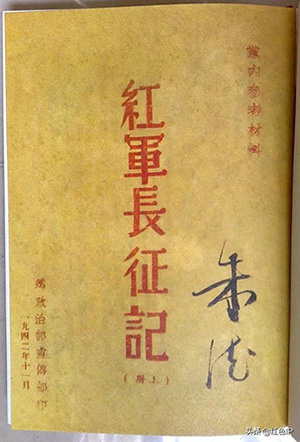 黨內參考材料
紅軍長征記
(上冊)
朱德
總政治部宣傳部印
一九四二年十一月
头条@红色IP